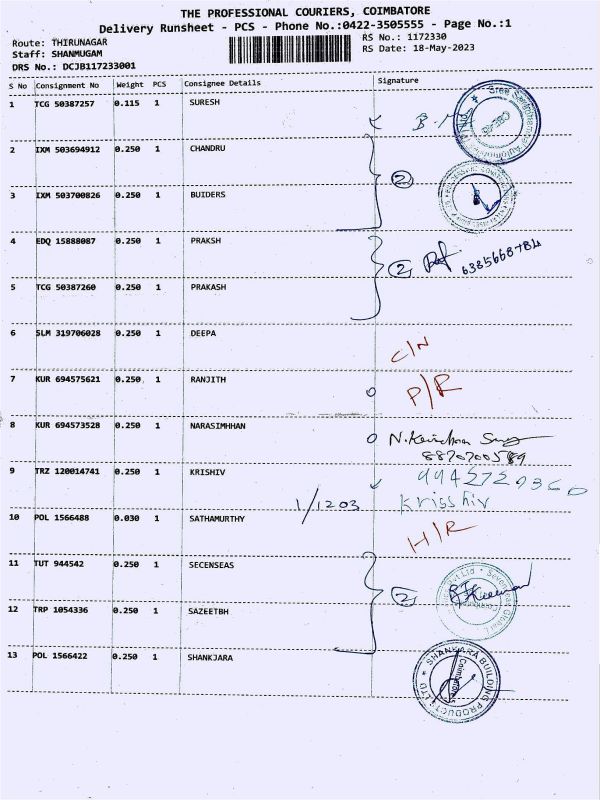 THE PROFESSIONAL COURIERS, COIMBATORE
Delivery Runsheet - PCS - Phone No.:0422-3505555 - Page No.:1
Route: THIRUNAGAR
Staff: SHANMUGAM
DRS No.: DCJB117233001
RS No.: 1172330
RS Date: 18-May-2023
S No Consignment No Weight PCS Consignee Details Signature
1 TCG 50387257 0.115 1 SURESH
2 IXM 503694912 0.250 1 CHANDRU
2
3 IXM 503700826 0.250 1 BUIDERS
4 EDQ 15888087 0.250 1 PRAKSH
2 6385668784
5 TCG 50387260 0.250 1 PRAKASH
6 SLM 319706028 0.250 1 DEEPA C/N
7 KUR 694575621 0.250 1 RANJITH P/R
8 KUR 694573528 0.250 1 NARASIMHHAN
8870700589
9 TRZ 120014741 0.250 1 KRISHIV
1/1203 Krisshiv
10 POL 1566488 0.030 1 SATHAMURTHY H/R
11 TUT 944542 0.250 1 SECENSEAS
2
12 TRP 1054336 0.250 1 SAZEETBH
13 POL 1566422 0.250 1 SHANKJARA
SHANKARA BUILDING PRODUCTS LTD
Coimbatore